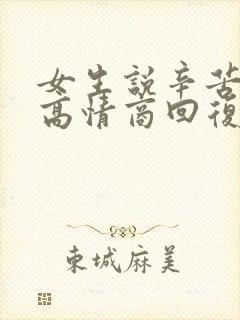 女生說辛苦
高情商回復
東城麻美